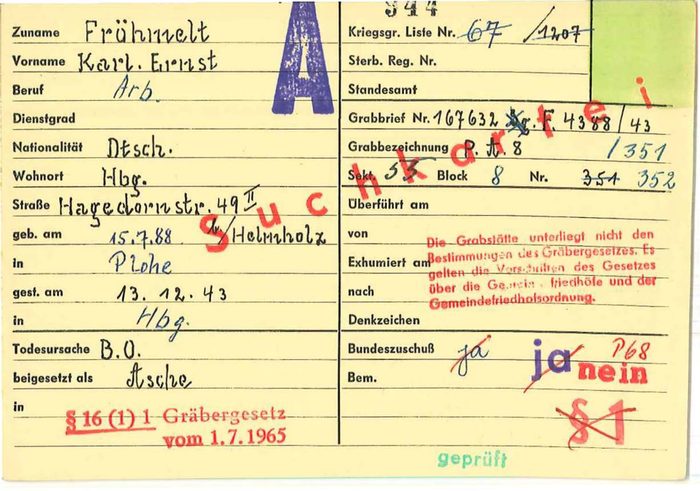 Zuname Frühmelt
Vorname Karl. Ernst
Beruf Arb.
Dienstgrad
Nationalität Dtsch.
Wohnort Hbg.
Straße Hagedornstr. 49 II
b/Helmholz
geb. am 15.7.88
in Plohe
gest. am 13.12.43
in Hbg.
Todesursache B.O.
beigesetzt als Asche
in
§ 16 (1) 1 Gräbergesetz
vom 1.7.1965
A
Suchkartei
Kriegsgr. Liste Nr. 67 / 1207
Sterb. Reg. Nr.
Standesamt
Grabbrief Nr. 167632 F. 4388/43
Grabbezeichnung P. A. 8 /351
Sekt. 55 Block 8 Nr. 351 352
Überführt am
von
Exhumiert am
nach
Die Grabstätte unterliegt nicht den
Bestimmungen des Gräbergesetzes. Es
gelten die Vorschriften des Gesetzes
über die friedhöfe und der
Gemeindefriedhofsordnung.
Denkzeichen
Bundeszuschuß ja ja nein P68
Bem.
§ 1
geprüft